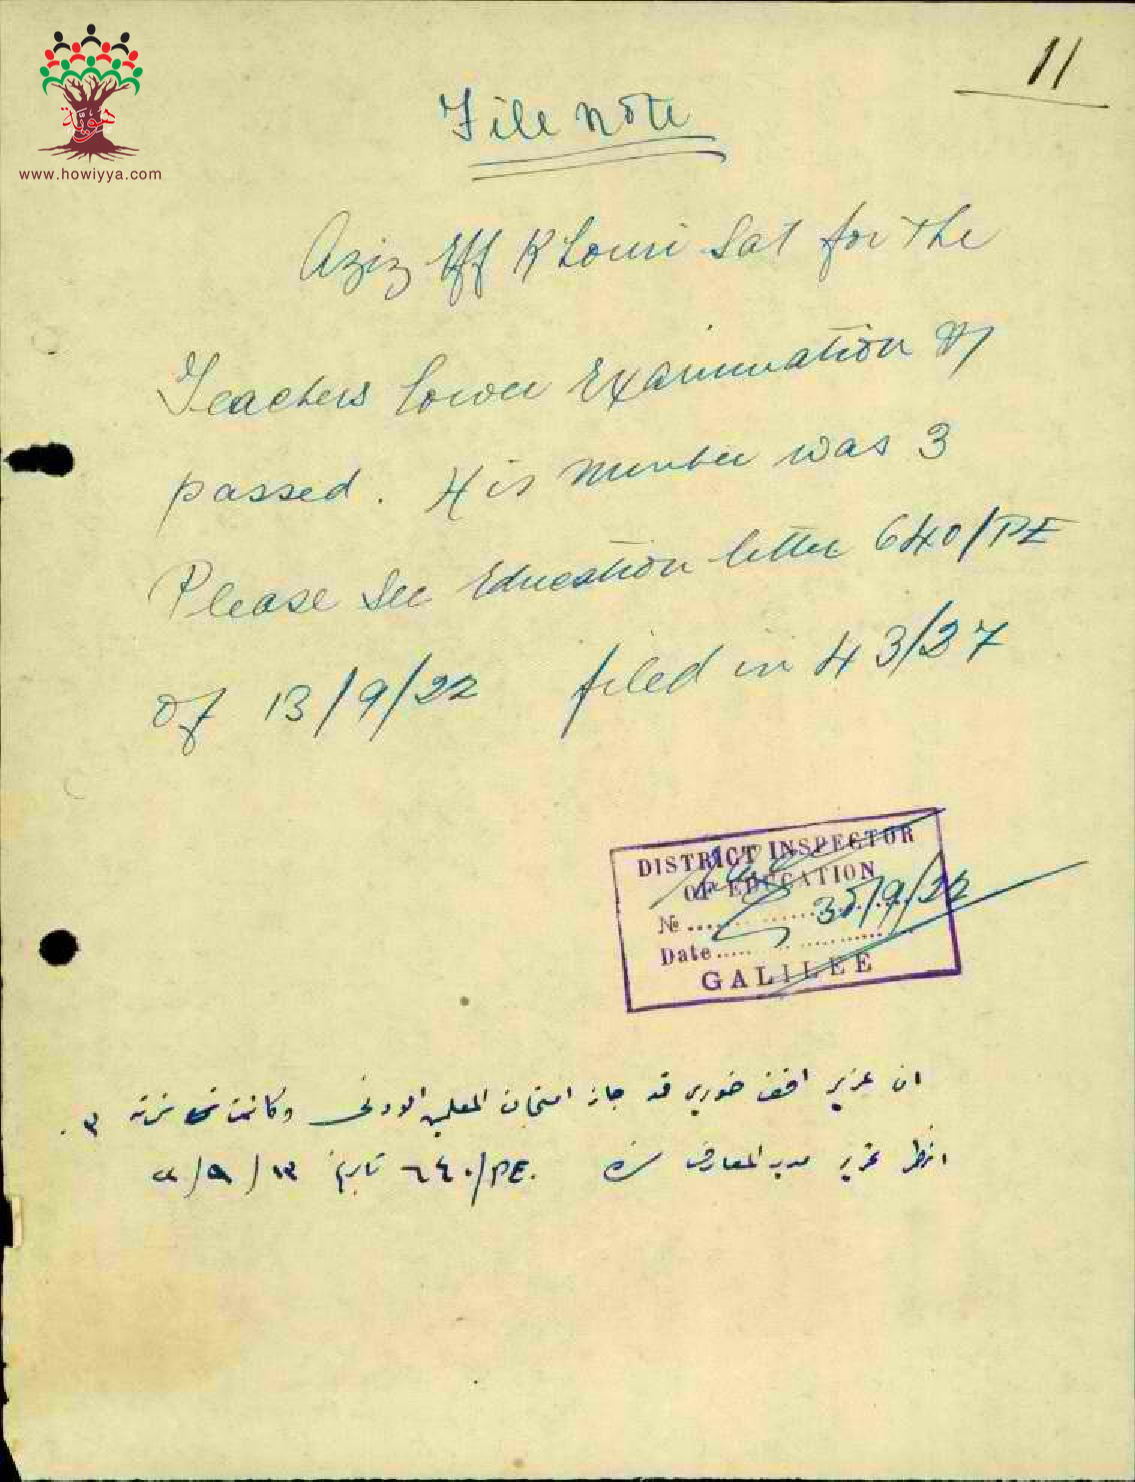 11
هوية
www.howiyya.com
File Note
Aziz Eff Khouri Sat for the
Teachers Lower Examination &
passed. His number was 3
Please See Education letter 640/PE
of 13/9/22 filed in 43/27
DISTRICT INSPECTOR
OF EDUCATION
№
Date
/9/22
GALILEE
ان عزيز افندي خوري قد جاز امتحان المعلمين الادنى وكانت نمرته ٣.
انظر تحرير مدير المعارف 640/PE. تاريخ ١٣/٩/